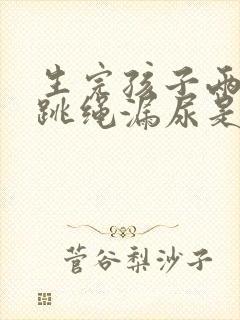 生完孩子两
跳绳漏尿是
菅谷梨沙子